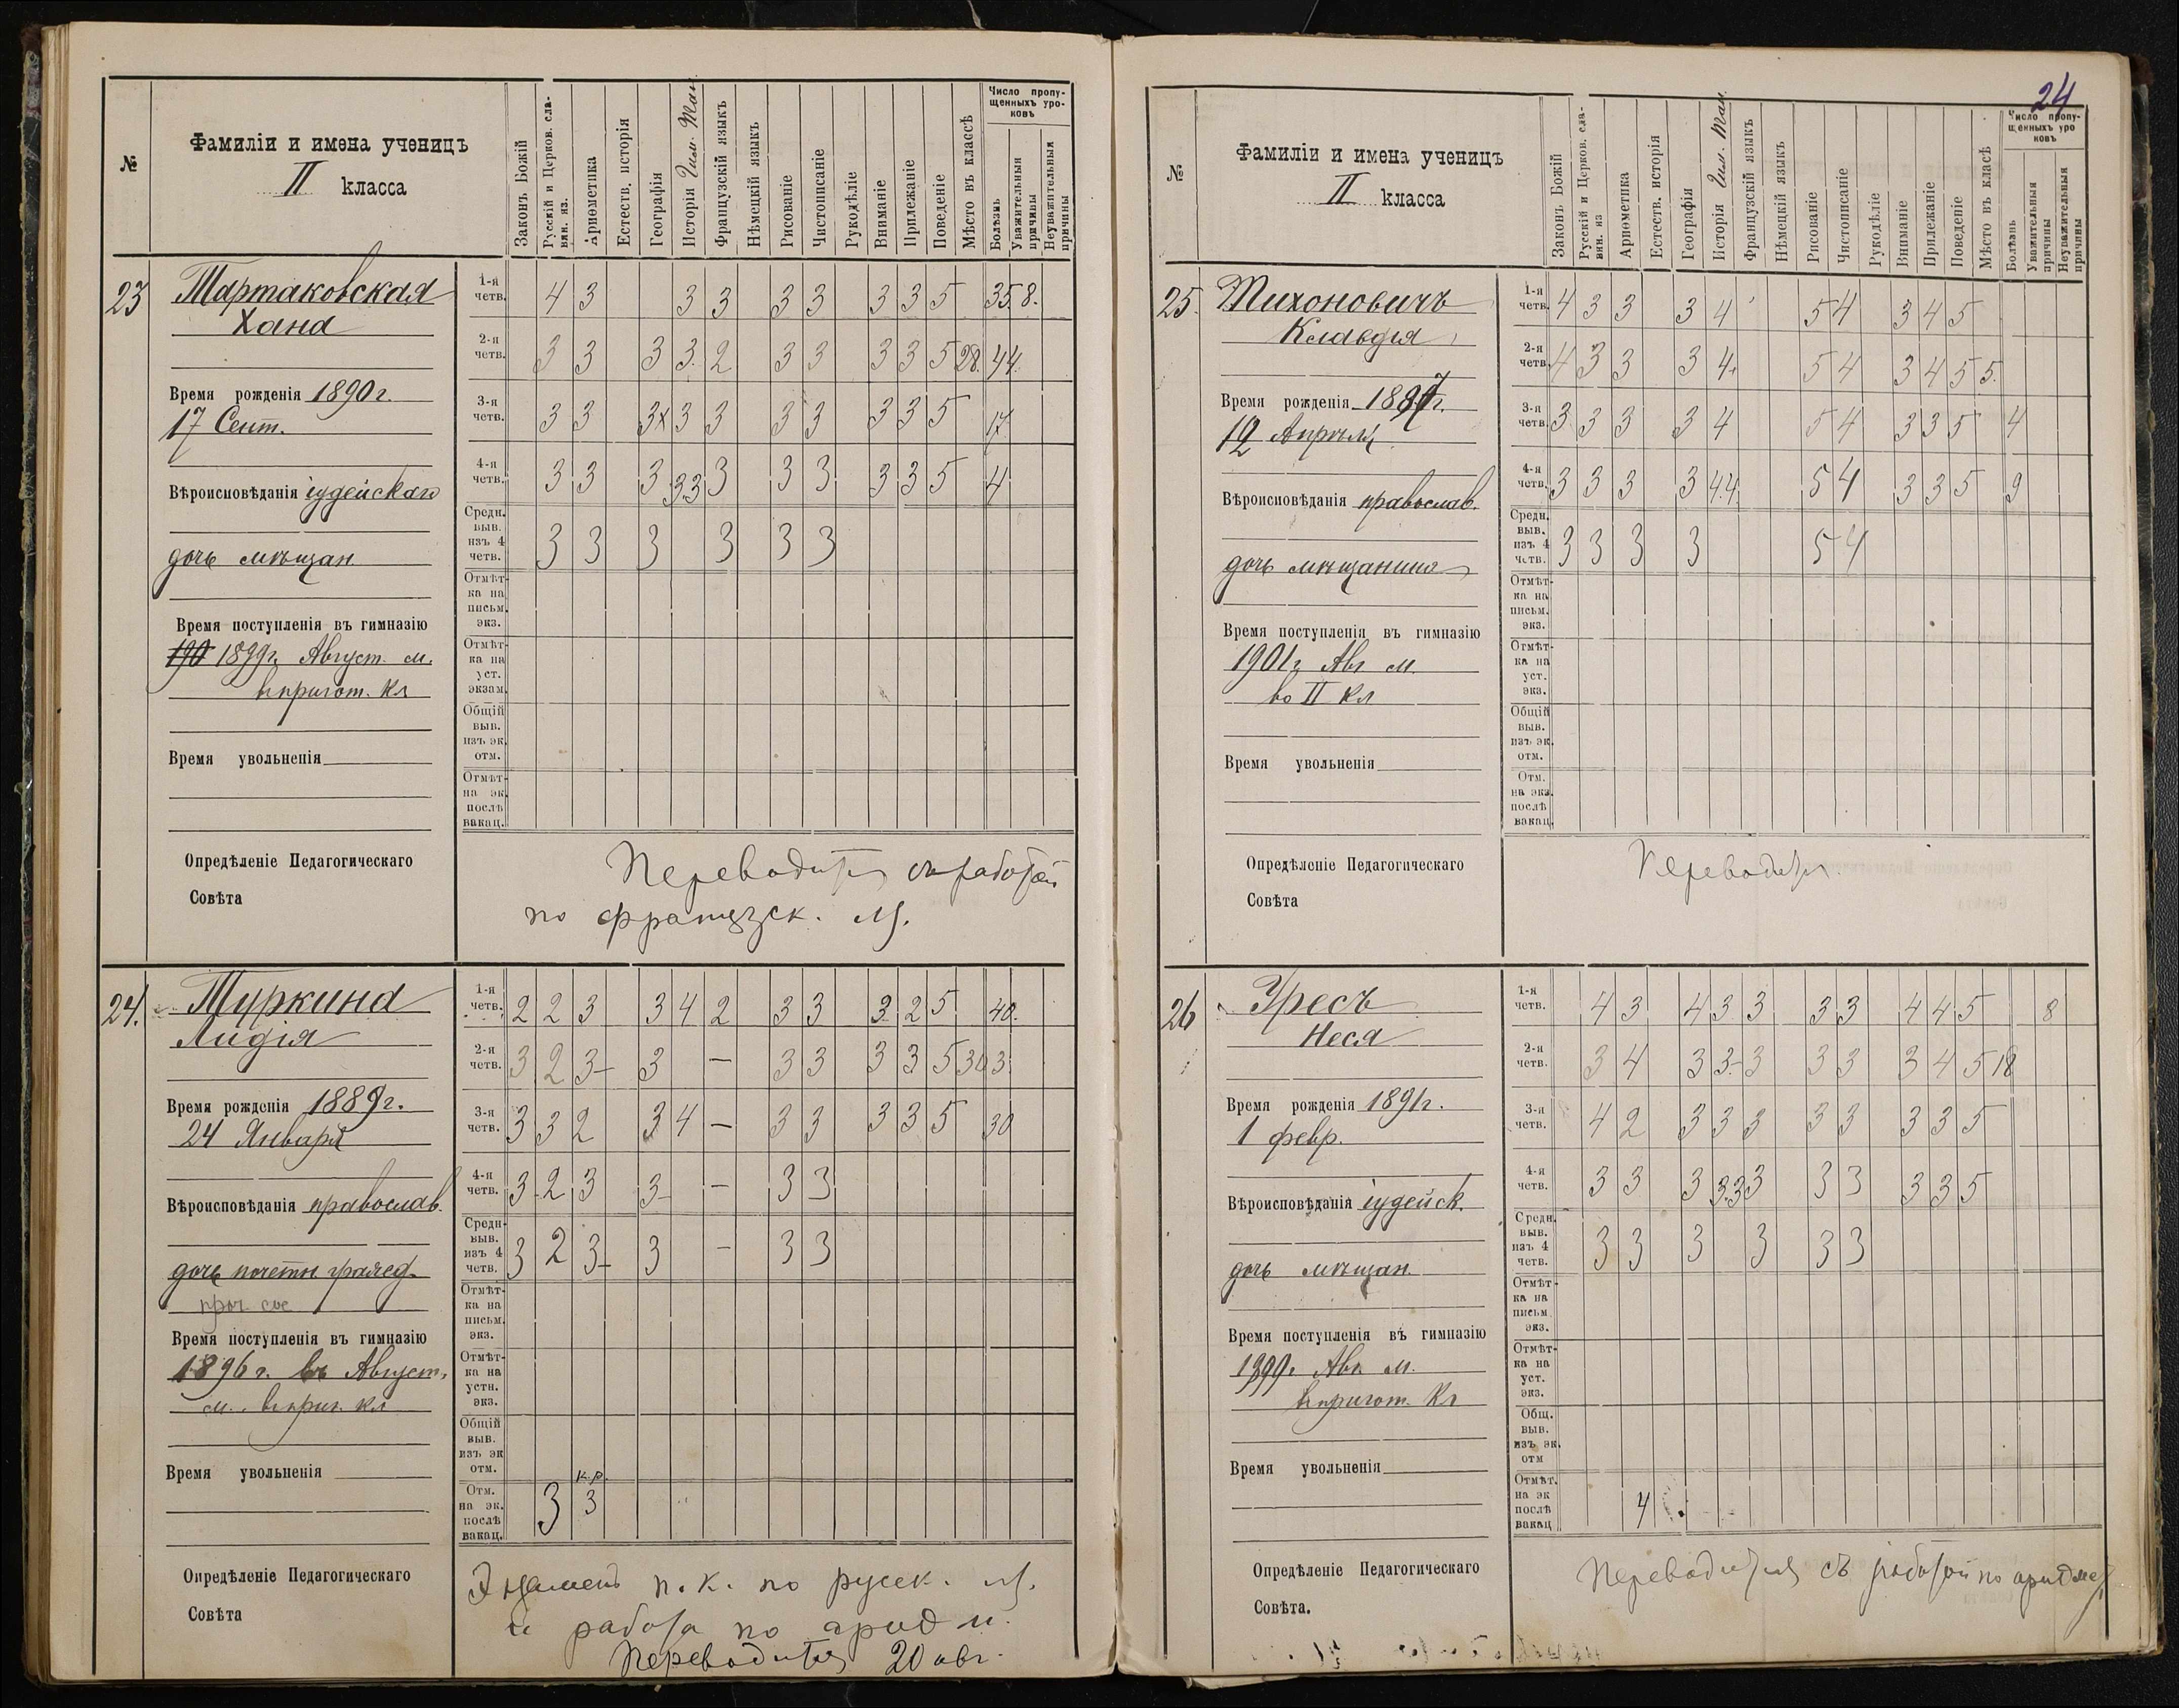 №
Фамиліи и имена ученицъ
II класса
Законъ Божій
Русскій и Церков. сла-
вян. яз.
Ариѳметика
Естеств. исторія
Географія
Исторія
Французскій языкъ
Нѣмецкій языкъ
Рисованіе
Чистописаніе
Рукодѣліе
Вниманіе
Прилежаніе
Поведеніе
Мѣсто въ классѣ
Число пропу-
щенныхъ уро-
ковъ
Болѣзнь
Уважительныя
причины
Неуважительныя
причины
23 Тартаковская
Хана
Время рожденія 1890 г.
17 Сент.
Вѣроисповѣданія іудейскаго
дочь мѣщан.
Время поступленія въ гимназію
1899 г. Август. м.
в пригот. кл
Время увольненія
1-я четв. 4 3 3 3 3 3 3 3 5 35 8.
2-я четв. 3 3 3 3. 2 3 3 3 3 5 28. 44.
3-я четв. 3 3 3х 3 3 3 3 3 3 5 17
4-я четв. 3 3 3 3.3 3 3 3 3 3 5 4
Средн. выв. изъ 4 четв. 3 3 3 3 3 3
Отмѣт-
ка на
письм.
экз.
Отмѣт-
ка на
уст.
экзам.
Общій
выв.
изъ эк.
отм.
Отмѣт-
на эк.
послѣ
вакац.
Опредѣленіе Педагогическаго
Совѣта
Переводится съ работой
по французск. яз.
24. Туркина
Лидія
Время рожденія 1889 г.
24 Января
Вѣроисповѣданія православ.
дочь почетн. гражд.
Время поступленія въ гимназію
1896 г. въ Август.
м. в приг. кл
Время увольненія
1-я четв. 2 2 3 3 4 2 3 3 3 2 5 40.
2-я четв. 3 2 3- 3 — 3 3 3 3 5 30 3.
3-я четв. 3 3 2 3 4 — 3 3 3 3 5 30
4-я четв. 3 2 3 3- — 3 3
Средн. выв. изъ 4 четв. 3 2 3- 3 — 3 3
Отмѣт-
ка на
письм.
экз.
Отмѣт-
ка на
устн.
экз.
Общій
выв.
изъ эк
отм.
к.р.
Отм. на эк. послѣ вакац. 3 3
Опредѣленіе Педагогическаго
Совѣта
Экзаменъ п. к. по русск. яз.
и работа по ариѳм.
Переводится 20 авг.
24
№
Фамиліи и имена ученицъ
II класса
Законъ Божій
Русскій и Церков. сла-
вян. яз
Ариѳметика
Естеств. исторія
Географія
Исторія
Французскій языкъ
Нѣмецкій языкъ
Рисованіе
Чистописаніе
Рукодѣліе
Вниманіе
Прилежаніе
Поведеніе
Мѣсто въ класѣ
Число пропу-
щенныхъ уро
ковъ
Болѣзнь
Уважительныя
причины
Неуважительныя
причины
25. Тихоновичъ
Клавдія
Время рожденія
12 Апрѣля
Вѣроисповѣданія православ.
дочь мѣщанина
Время поступленія въ гимназію
1901 г Авг м.
во II кл
Время увольненія
1-я четв. 4 3 3 3 4 5 4 3 4 5
2-я четв. 4 3 3 3 4. 5 4 3 4 5 5.
3-я четв. 3 3 3 3 4 5 4 3 3 5 4
4-я четв. 3 3 3 3 4.4 5 4 3 3 5 9
Средн. выв. изъ 4 четв. 3 3 3 3 5 4
Отмѣт-
ка на
письм.
экз.
Отмѣт-
ка на
уст.
экз.
Общій
выв.
изъ эк.
отм.
Отм.
на экз.
послѣ
вакац.
Опредѣленіе Педагогическаго
Совѣта
Переводится.
26 Уресъ
Неся
Время рожденія 1891 г.
1 февр.
Вѣроисповѣданія іудейск.
дочь мѣщан.
Время поступленія въ гимназію
Авг. м.
в пригот. кл
Время увольненія
1-я четв. 4 3 4 3 3 3 3 4 4 5 8
2-я четв. 3 4 3 3- 3 3 3 3 4 5 18
3-я четв. 4 2 3 3 3 3 3 3 3 5
4-я четв. 3 3 3 3.3 3 3 3 3 3 5
Средн. выв. изъ 4 четв. 3 3 3 3 3 3
Отмѣт-
ка на
письм
экз.
Отмѣт-
ка на
уст.
экз.
Общ.
выв.
изъ эк.
отм
Отмѣт. на эк послѣ вакац 4
Опредѣленіе Педагогическаго
Совѣта.
Переводится съ работой по ариѳмет